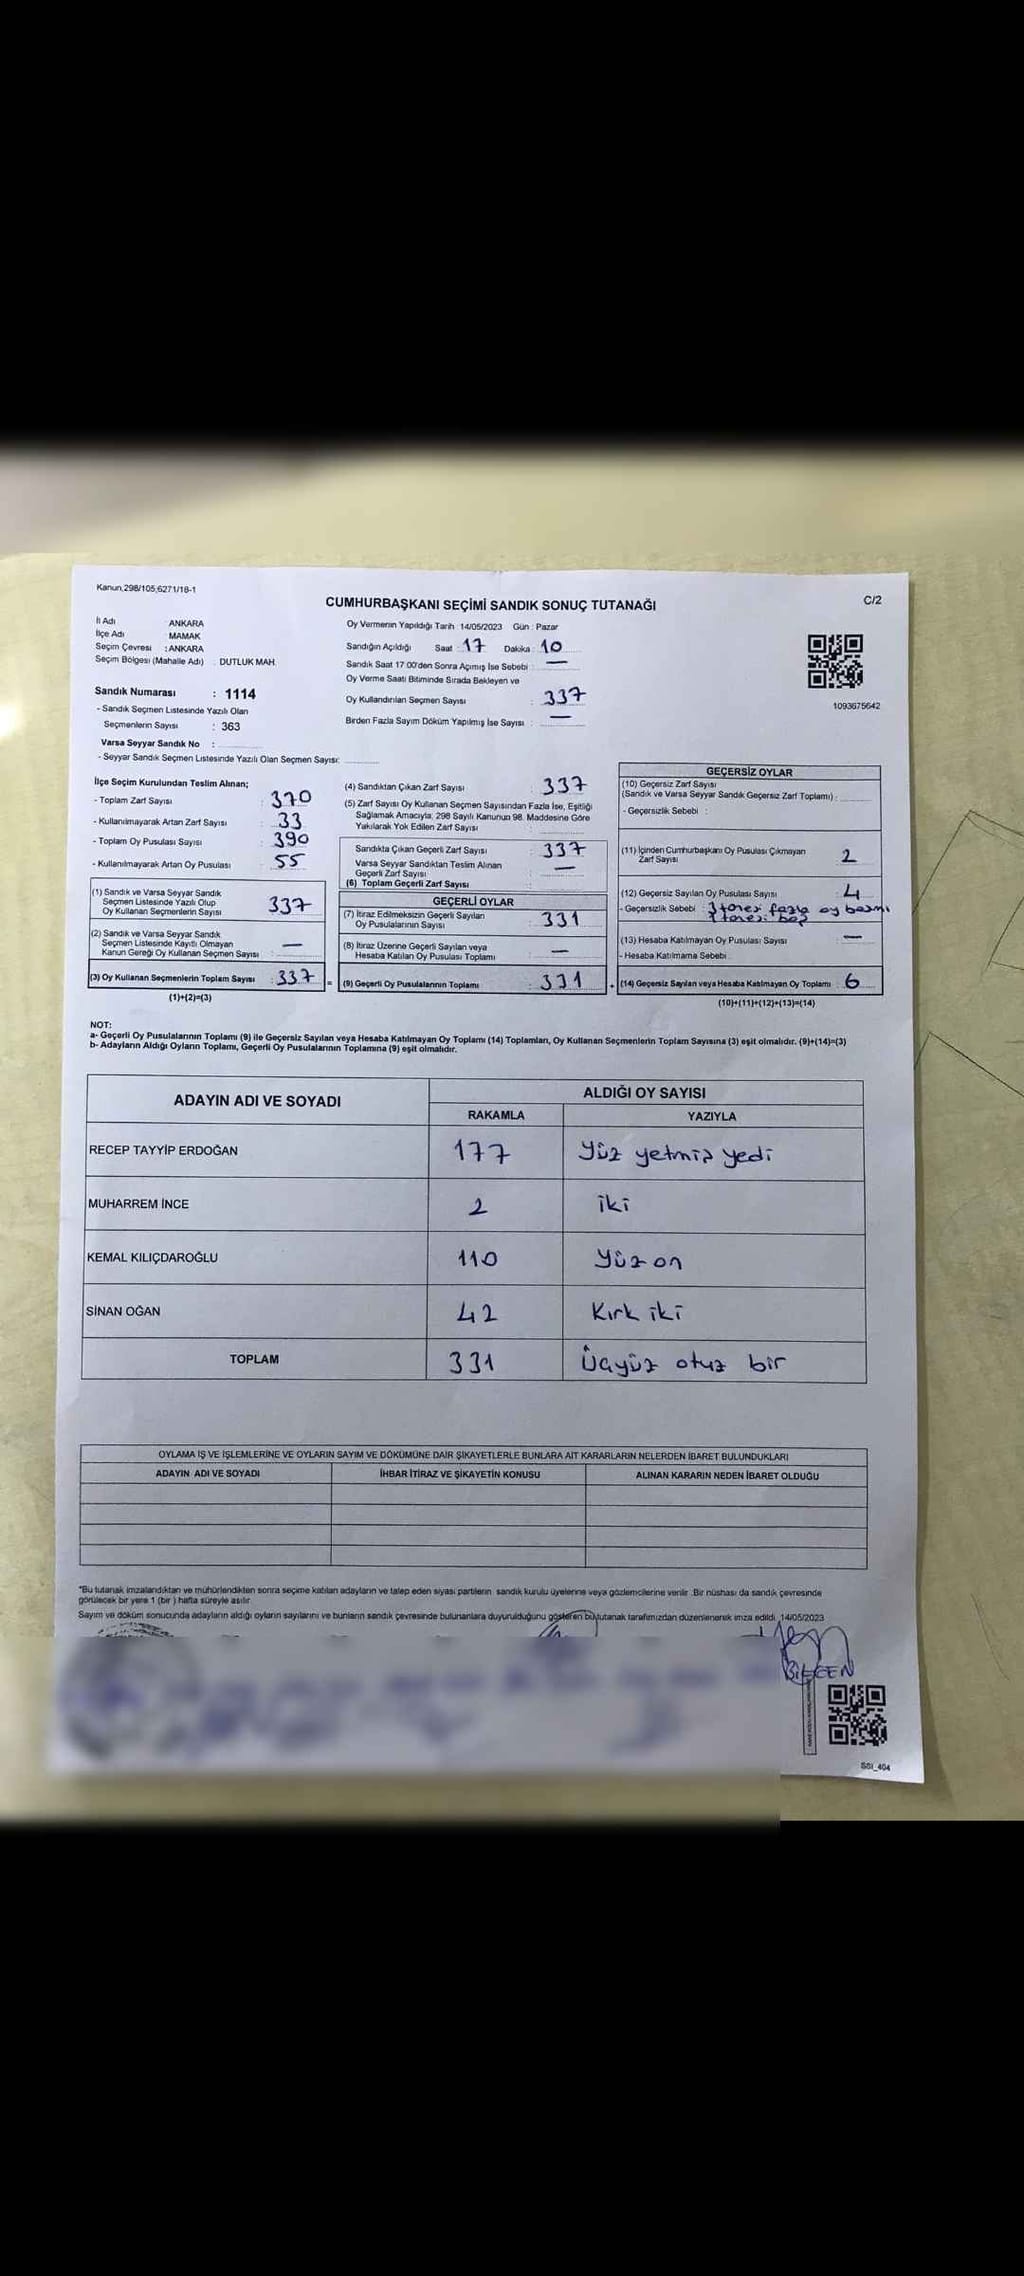 Kanun,298/105,6271/18-1
C/2
CUMHURBAŞKANI SEÇİMİ SANDIK SONUÇ TUTANAĞI
İl Adı : ANKARA
İlçe Adı : MAMAK
Seçim Çevresi : ANKARA
Seçim Bölgesi (Mahalle Adı) : DUTLUK MAH.
Sandık Numarası : 1114
- Sandık Seçmen Listesinde Yazılı Olan
Seçmenlerin Sayısı : 363
Varsa Seyyar Sandık No :
- Seyyar Sandık Seçmen Listesinde Yazılı Olan Seçmen Sayısı:
Oy Vermenin Yapıldığı Tarih : 14/05/2023 Gün : Pazar
Sandığın Açıldığı Saat : 17 Dakika : 10
Sandık Saat 17:00'den Sonra Açımış İse Sebebi : —
Oy Verme Saati Bitiminde Sırada Bekleyen ve
Oy Kullandırılan Seçmen Sayısı : 337
Birden Fazla Sayım Döküm Yapılmış İse Sayısı : —
1093675642
İlçe Seçim Kurulundan Teslim Alınan;
- Toplam Zarf Sayısı : 370
- Kullanılmayarak Artan Zarf Sayısı : 33
- Toplam Oy Pusulası Sayısı : 390
- Kullanılmayarak Artan Oy Pusulası : 55
(1) Sandık ve Varsa Seyyar Sandık
Seçmen Listesinde Yazılı Olup
Oy Kullanan Seçmenlerin Sayısı : 337
(2) Sandık ve Varsa Seyyar Sandık
Seçmen Listesinde Kayıtlı Olmayan
Kanun Gereği Oy Kullanan Seçmen Sayısı : —
(3) Oy Kullanan Seçmenlerin Toplam Sayısı : 337
(1)+(2)=(3)
(4) Sandıktan Çıkan Zarf Sayısı : 337
(5) Zarf Sayısı Oy Kullanan Seçmen Sayısından Fazla İse, Eşitliği
Sağlamak Amacıyla; 298 Sayılı Kanunun 98. Maddesine Göre
Yakılarak Yok Edilen Zarf Sayısı :
Sandıkta Çıkan Geçerli Zarf Sayısı : 337
Varsa Seyyar Sandıktan Teslim Alınan
Geçerli Zarf Sayısı : —
(6) Toplam Geçerli Zarf Sayısı :
GEÇERLİ OYLAR
(7) İtiraz Edilmeksizin Geçerli Sayılan
Oy Pusulalarının Sayısı : 331
(8) İtiraz Üzerine Geçerli Sayılan veya
Hesaba Katılan Oy Pusulası Toplamı : —
= (9) Geçerli Oy Pusulalarının Toplamı : 331
GEÇERSİZ OYLAR
(10) Geçersiz Zarf Sayısı
(Sandık ve Varsa Seyyar Sandık Geçersiz Zarf Toplamı) :
- Geçersizlik Sebebi :
(11) İçinden Cumhurbaşkanı Oy Pusulası Çıkmayan
Zarf Sayısı : 2
(12) Geçersiz Sayılan Oy Pusulası Sayısı : 4
- Geçersizlik Sebebi : 3 tanesi fazla oy basımı
1 tanesi boş
(13) Hesaba Katılmayan Oy Pusulası Sayısı : —
- Hesaba Katılmama Sebebi :
+ (14) Geçersiz Sayılan veya Hesaba Katılmayan Oy Toplamı : 6
(10)+(11)+(12)+(13)=(14)
NOT:
a- Geçerli Oy Pusulalarının Toplamı (9) ile Geçersiz Sayılan veya Hesaba Katılmayan Oy Toplamı (14) Toplamları, Oy Kullanan Seçmenlerin Toplam Sayısına (3) eşit olmalıdır. (9)+(14)=(3)
b- Adayların Aldığı Oyların Toplamı, Geçerli Oy Pusulalarının Toplamına (9) eşit olmalıdır.
ADAYIN ADI VE SOYADI
ALDIĞI OY SAYISI
RAKAMLA YAZIYLA
RECEP TAYYİP ERDOĞAN 177 Yüz yetmiş yedi
MUHARREM İNCE 2 iki
KEMAL KILIÇDAROĞLU 110 Yüz on
SİNAN OĞAN 42 Kırk iki
TOPLAM 331 Üçyüz otuz bir
OYLAMA İŞ VE İŞLEMLERİNE VE OYLARIN SAYIM VE DÖKÜMÜNE DAİR ŞİKAYETLERLE BUNLARA AİT KARARLARIN NELERDEN İBARET BULUNDUKLARI
ADAYIN ADI VE SOYADI İHBAR İTİRAZ VE ŞİKAYETİN KONUSU ALINAN KARARIN NEDEN İBARET OLDUĞU
*Bu tutanak imzalandıktan ve mühürlendikten sonra seçime katılan adayların ve talep eden siyasi partilerin sandık kurulu üyelerine veya gözlemcilerine verilir. Bir nüshası da sandık çevresinde
görülecek bir yere 1 (bir ) hafta süreyle asılır.
Sayım ve döküm sonucunda adayların aldığı oyların sayılarını ve bunların sandık çevresinde bulunanlara duyurulduğunu gösteren bu tutanak tarafımızdan düzenlenerek imza edildi. 14/05/2023
SSI_404